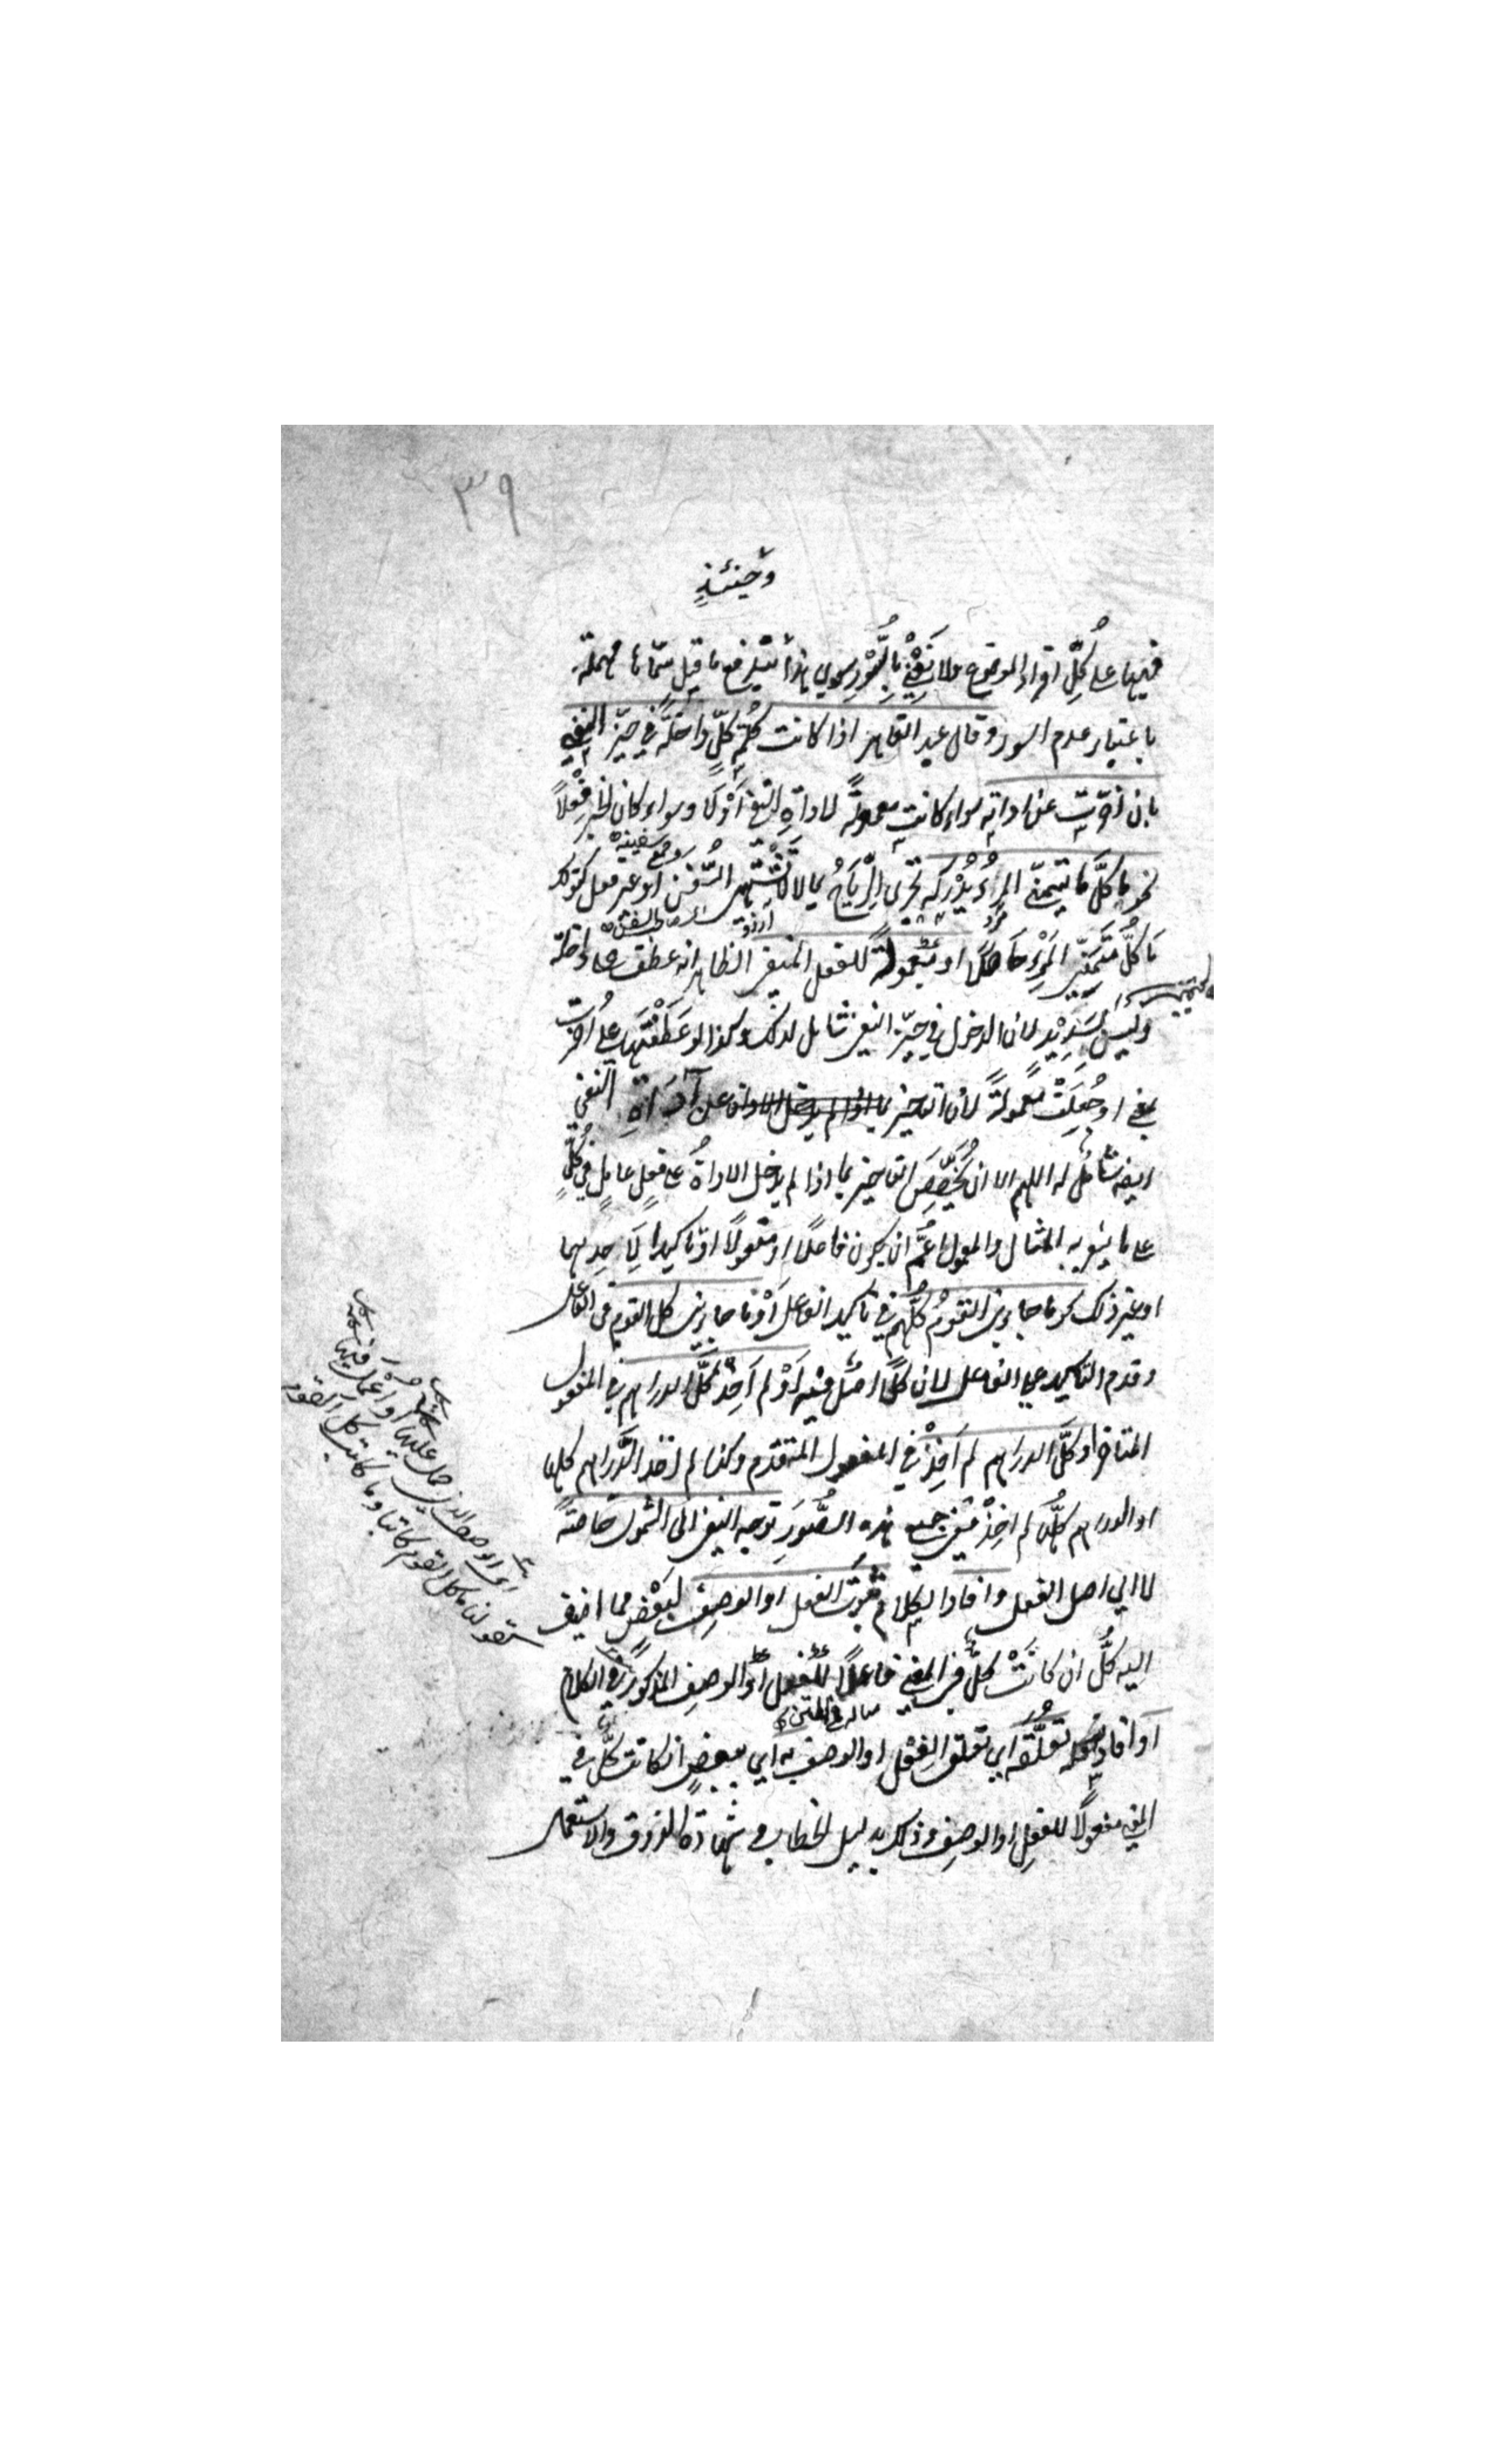 ٣٩
وحينئذٍ
فيها على كُلِّ افراد الموضوع ولا نَعْنِي بالسُّورِ سوى هذا فيه ما قيل سمّاها مهملة
باعتبار عدم السور وقال عبد القاهر اذا كانت كلمة كلٍّ داخلةً في حيّز النفي
بان اخرت عن اداته سواء كانت معمولةً لاداةِ النفي أوْ لَا وسواء كان الخبر فِعْلاً
نحو ما كلَّ ما يتمنّى المرءُ يُدْرِكُه تجري الرِّيَاحُ بما لا تَشْتَهي السُّفُنُ او غير فعل كقولك
مَا كُلُّ مُتَمَنَّى المَرْءِ حَاصِلًا او معمولةً للفعل المنفي الظاهر انه عطف على داخلة
وليس بسَدِيْدٍ لان الدخول في حيّز النفي شامل لذلك وكذا لو عَطَفْتَها على اُخرت
بمعنى او جُعِلَتْ معمولةً لان التاخير عن أدَاةِ النفي
ايضا شامل له اللهم الا ان يُخَصَّصَ التاخير بما اذا لم يدخل الاداةُ على فعلٍ عاملٍ في كُلٍّ
على ما يشعر به المثال والمعمول اعَمُّ ان يكون فاعلًا او مفعولًا او تاكيدا لِأحدِهما
او غير ذلك نحو ما جاءني القومُ كُلُّهم في تاكيد الفاعل أوْ ما جاءني كل القوم في الفاعل
وقدم التاكيد على الفاعل لان كلًّا اصل فيه أوْ لم آخذْ كلَّ الدراهم في المفعول
المتاخر او كلَّ الدراهم لم آخِذْ في المفعول المتقدم وكذا لم آخذ الدَّراهم كلها
او الدراهم كلَّها لم آخذْ ففي جميع هذه الصُّوَرِ توجه النفي الى الشمول خاصّةً
لا الي اصل الفعل وافاد الكلام ثبوتَ الفعل او الوصفِ لبَعْضٍ مما اضيف
اليه كلُّ ان كانَتْ كلٌّ في المعنى فاعلًا للفعل او الوصف المذكور في الكلام
أو افاد تعلّقه اي تعلق الفِعْلِ او الوصف به اي ببعضٍ ان كانت كلّ في
المعنى مفعولًا للفعلِ او الوصف وذلك بدليل الخطاب و شهادة الذوق والاستعمال
اي او الوصف الذي حمل عليها او اعمل فيها
كقولنا ما كل القوم كاتبا وما كاتب كل القوم